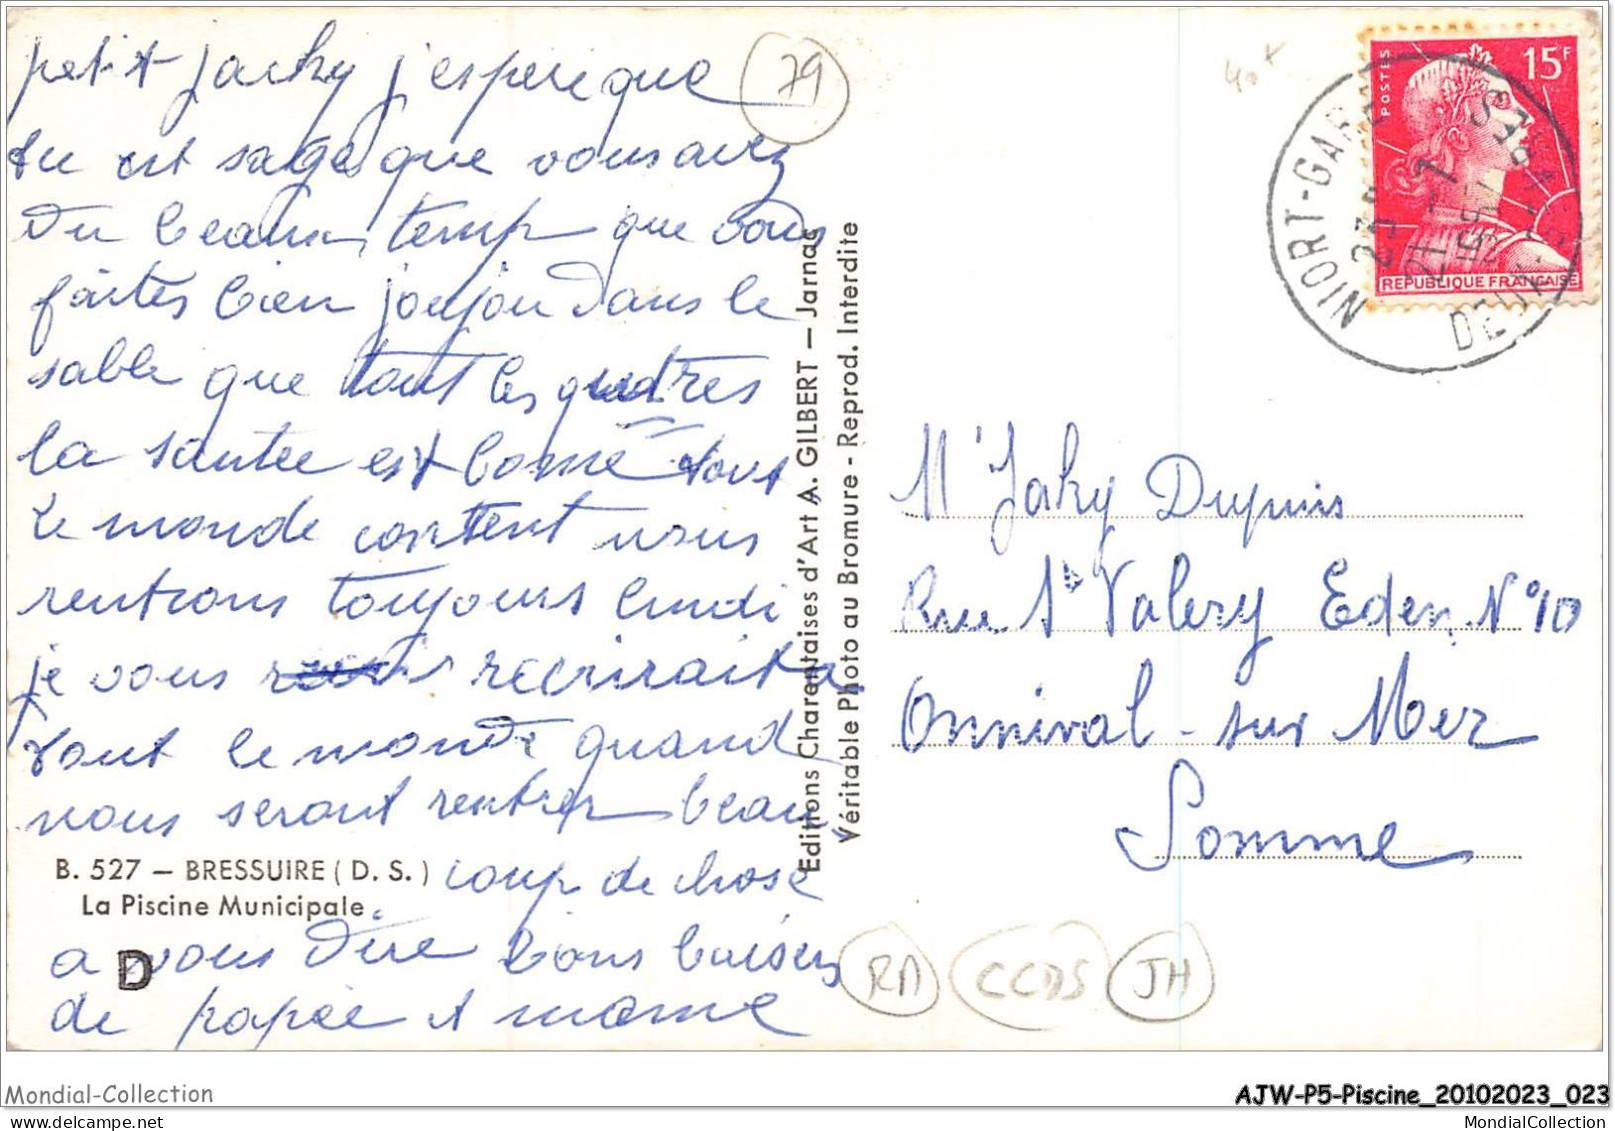 petit jacky j'espère que
tu est sage que vous avez
du beau temp que vous
faites bien joujou dans le
sable que tout les quatres
la santée est bonne tout
le monde content nous
rentrons toujours lundi
je vous recrirait a
tout le monde quand
nous seront rentrer beau
coup de chose
a vous dire bons baisers
de papée et mame
B. 527 — BRESSUIRE ( D. S. )
La Piscine Municipale.
D
79
Editions Charentaises d'Art A. GILBERT — Jarnac
Véritable Photo au Bromure - Reprod. Interdite
POSTES
15F
REPUBLIQUE FRANÇAISE
NIORT-GARE
23H
21-7
DEUX-
Mr Jaky Dupuis
Rue St Valery Eden N°10
Onnival - sur Mer
Somme
RA
CCDS
JH
Mondial-Collection
AJW-P5-Piscine_20102023_023
MondialCollection